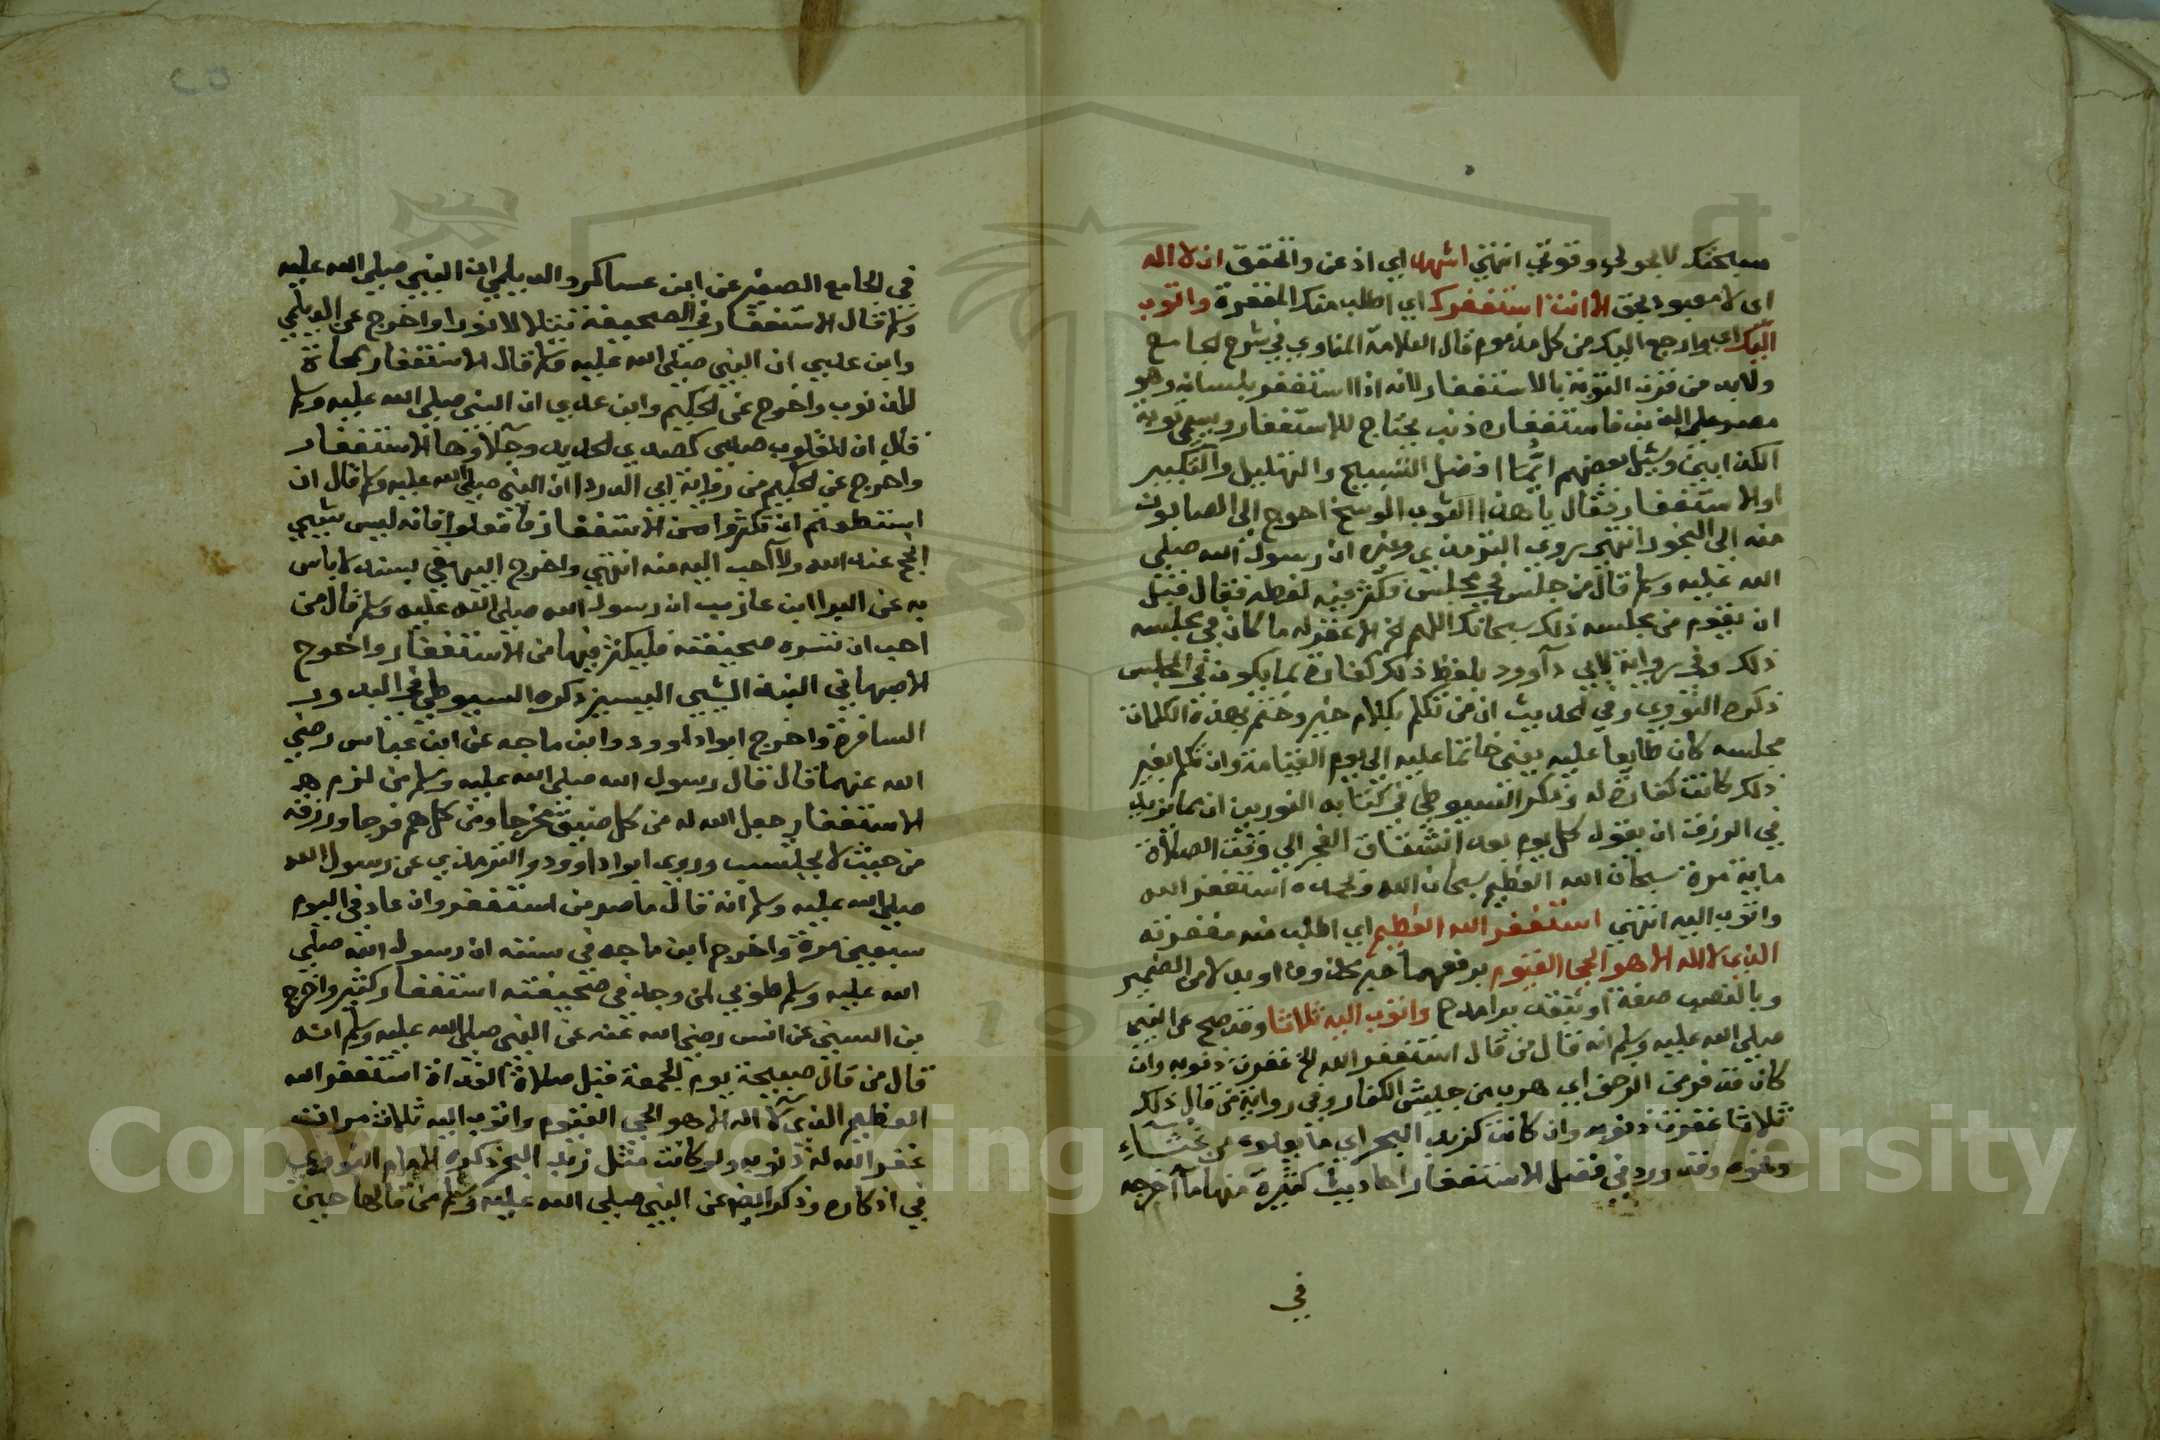 سبحتك لا بحولي وقوتي انتهي اشهد اي اذعن واتحقق ان لا اله
اى لا معبود بحق الا انت استغفرك اي اطلب منك المغفرة واتوب
اليك اي وارجع اليك من كل مذموم قال العلامة المناوي في شرح الجامع
ولابد من قرن التوبة بالاستغفار لانه اذا استغفر بلسانه وهو
مصر على الذنب فاستغفاره ذنب يحتاج للاستغفار ويسمى توبة
الكذابين وسئل بعضهم ايما افضل التسبيح والتهليل والتكبير
اوالاستغفار فقال يا هذا الثوب الوسخ احوج الى الصابون
منه الى البخور انتهى روى الترمذي وغيره ان رسول الله صلى
الله عليه وسلم قال من جلس في مجلس فكثر فيه لغطه فقال قبل
ان يقوم من مجلسه ذلك سبحانك اللهم الخ الا غفر له ما كان في مجلسه
ذلك وفي رواية لابي دآوود بلفظ ذلك كفارة لما يكون في المجلس
ذكره النووي وفي الحديث ان من تكلم بكلام خير وختم بهذه الكلمات
مجلسه كان طابعا عليه يعنى خاتما عليه الى يوم القيامة وان تكلم بغير
ذلك كانت كفارة له وذكر السيوطي في كتابه النورين ان مما يزيد
في الرزق ان يقول كل يوم بعد انشقاق الفجر الي وقت الصلاة
ماية مرة سبحان الله العظيم سبحان الله وبحمده استغفر الله
واتوب اليه انتهي استغفر الله العظيم اي اطلب منه مغفرته
الذي لا اله الا هو الحي القيوم برفعهما خبر محذوف او بدلا من الضمير
وبالنصب صفة او بتقدير امدح واتوب اليه ثلاثا وقد صح عن النبي
صلى الله عليه وسلم انه قال من قال استغفر الله الخ غفرت ذنوبه وان
كان قد فر من الزحف اي هرب من جيش الكفار وفي رواية من قال ذلك
ثلاثا غفرت ذنوبه وان كانت كزبد البحر اي ما يعلوه من غثاء
ونحوه وقد ورد في فضل الاستغفار احاديث كثيرة منها ما آخرجه
في
في الجامع الصغير عن ابن عساكر والديلمي ان النبي صلى الله عليه
وسلم قال الاستغفار في الصحيفة يتلالا نورا واخرج عن الديلمي
وابن عدي ان النبي صلى الله عليه وسلم قال الاستغفار ممحاة
للذنوب واخرج عن الحكيم وابن عدي ان النبي صلى الله عليه وسلم
قال ان للقلوب صدي كصدي الحديد وجلاوها الاستغفار
واخرج عن الحكيم من رواية ابي الدردا ان النبي صلى الله عليه وسلم قال ان
استطعتم ان تكثروا من الاستغفار فافعلوا فانه ليس شيي
انجح عند الله ولا آحب اليه منه انتهي واخرج البيهقي بسند لا باس
به عن البرا ابن عازب ان رسول الله صلى الله عليه وسلم قال من
احب ان تسره صحيفته فليكثر فيها من الاستغفار واخرج
الاصبهاني البذة الشيي اليسير ذكره السيوطي في البدور
السافره واخرج ابو داوود وابن ماجه عن ابن عباس رضي
الله عنهما قال قال رسول الله صلى الله عليه وسلم من لزم
الاستغفار جعل الله له من كل ضيق مخرجا ومن كل هم فرجا ورزقه
من حيث لا يحتسب وروى ابو داوود والترمذي عن رسول الله
صلى الله عليه وسلم انه قال ما اصر من استغفر وان عاد في اليوم
سبعين مرة واخرج ابن ماجه في سننه ان رسول الله صلى
الله عليه وسلم طوبي لمن وجد في صحيفته استغفار كثير واخرج
بن السني عن انس رضي الله عنه عن النبي صلى الله عليه وسلم انه
قال من قال صبيحة يوم الجمعة قبل صلاة الغداة استغفر الله
العظيم الذي لا اله الا هو الحي القيوم واتوب اليه ثلاث مرات
غفر الله له ذنوبه ولو كانت مثل زبد البحر ذكره الامام النووي
في اذكاره وذكر ايضا عن النبي صلى الله عليه وسلم من قالها حين
Copyright © King Saud University